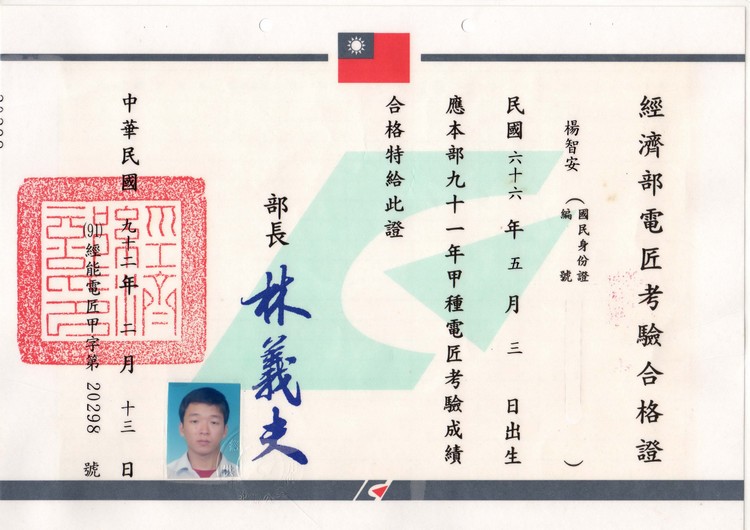 經濟部電匠考驗合格證
楊智安（國民身份證編號）
民國六十六年五月三日出生
應本部九十一年甲種電匠考驗成績
合格特給此證
部長 林義夫
中華民國九十二年二月十三日
(91)經能電匠甲字第20298號